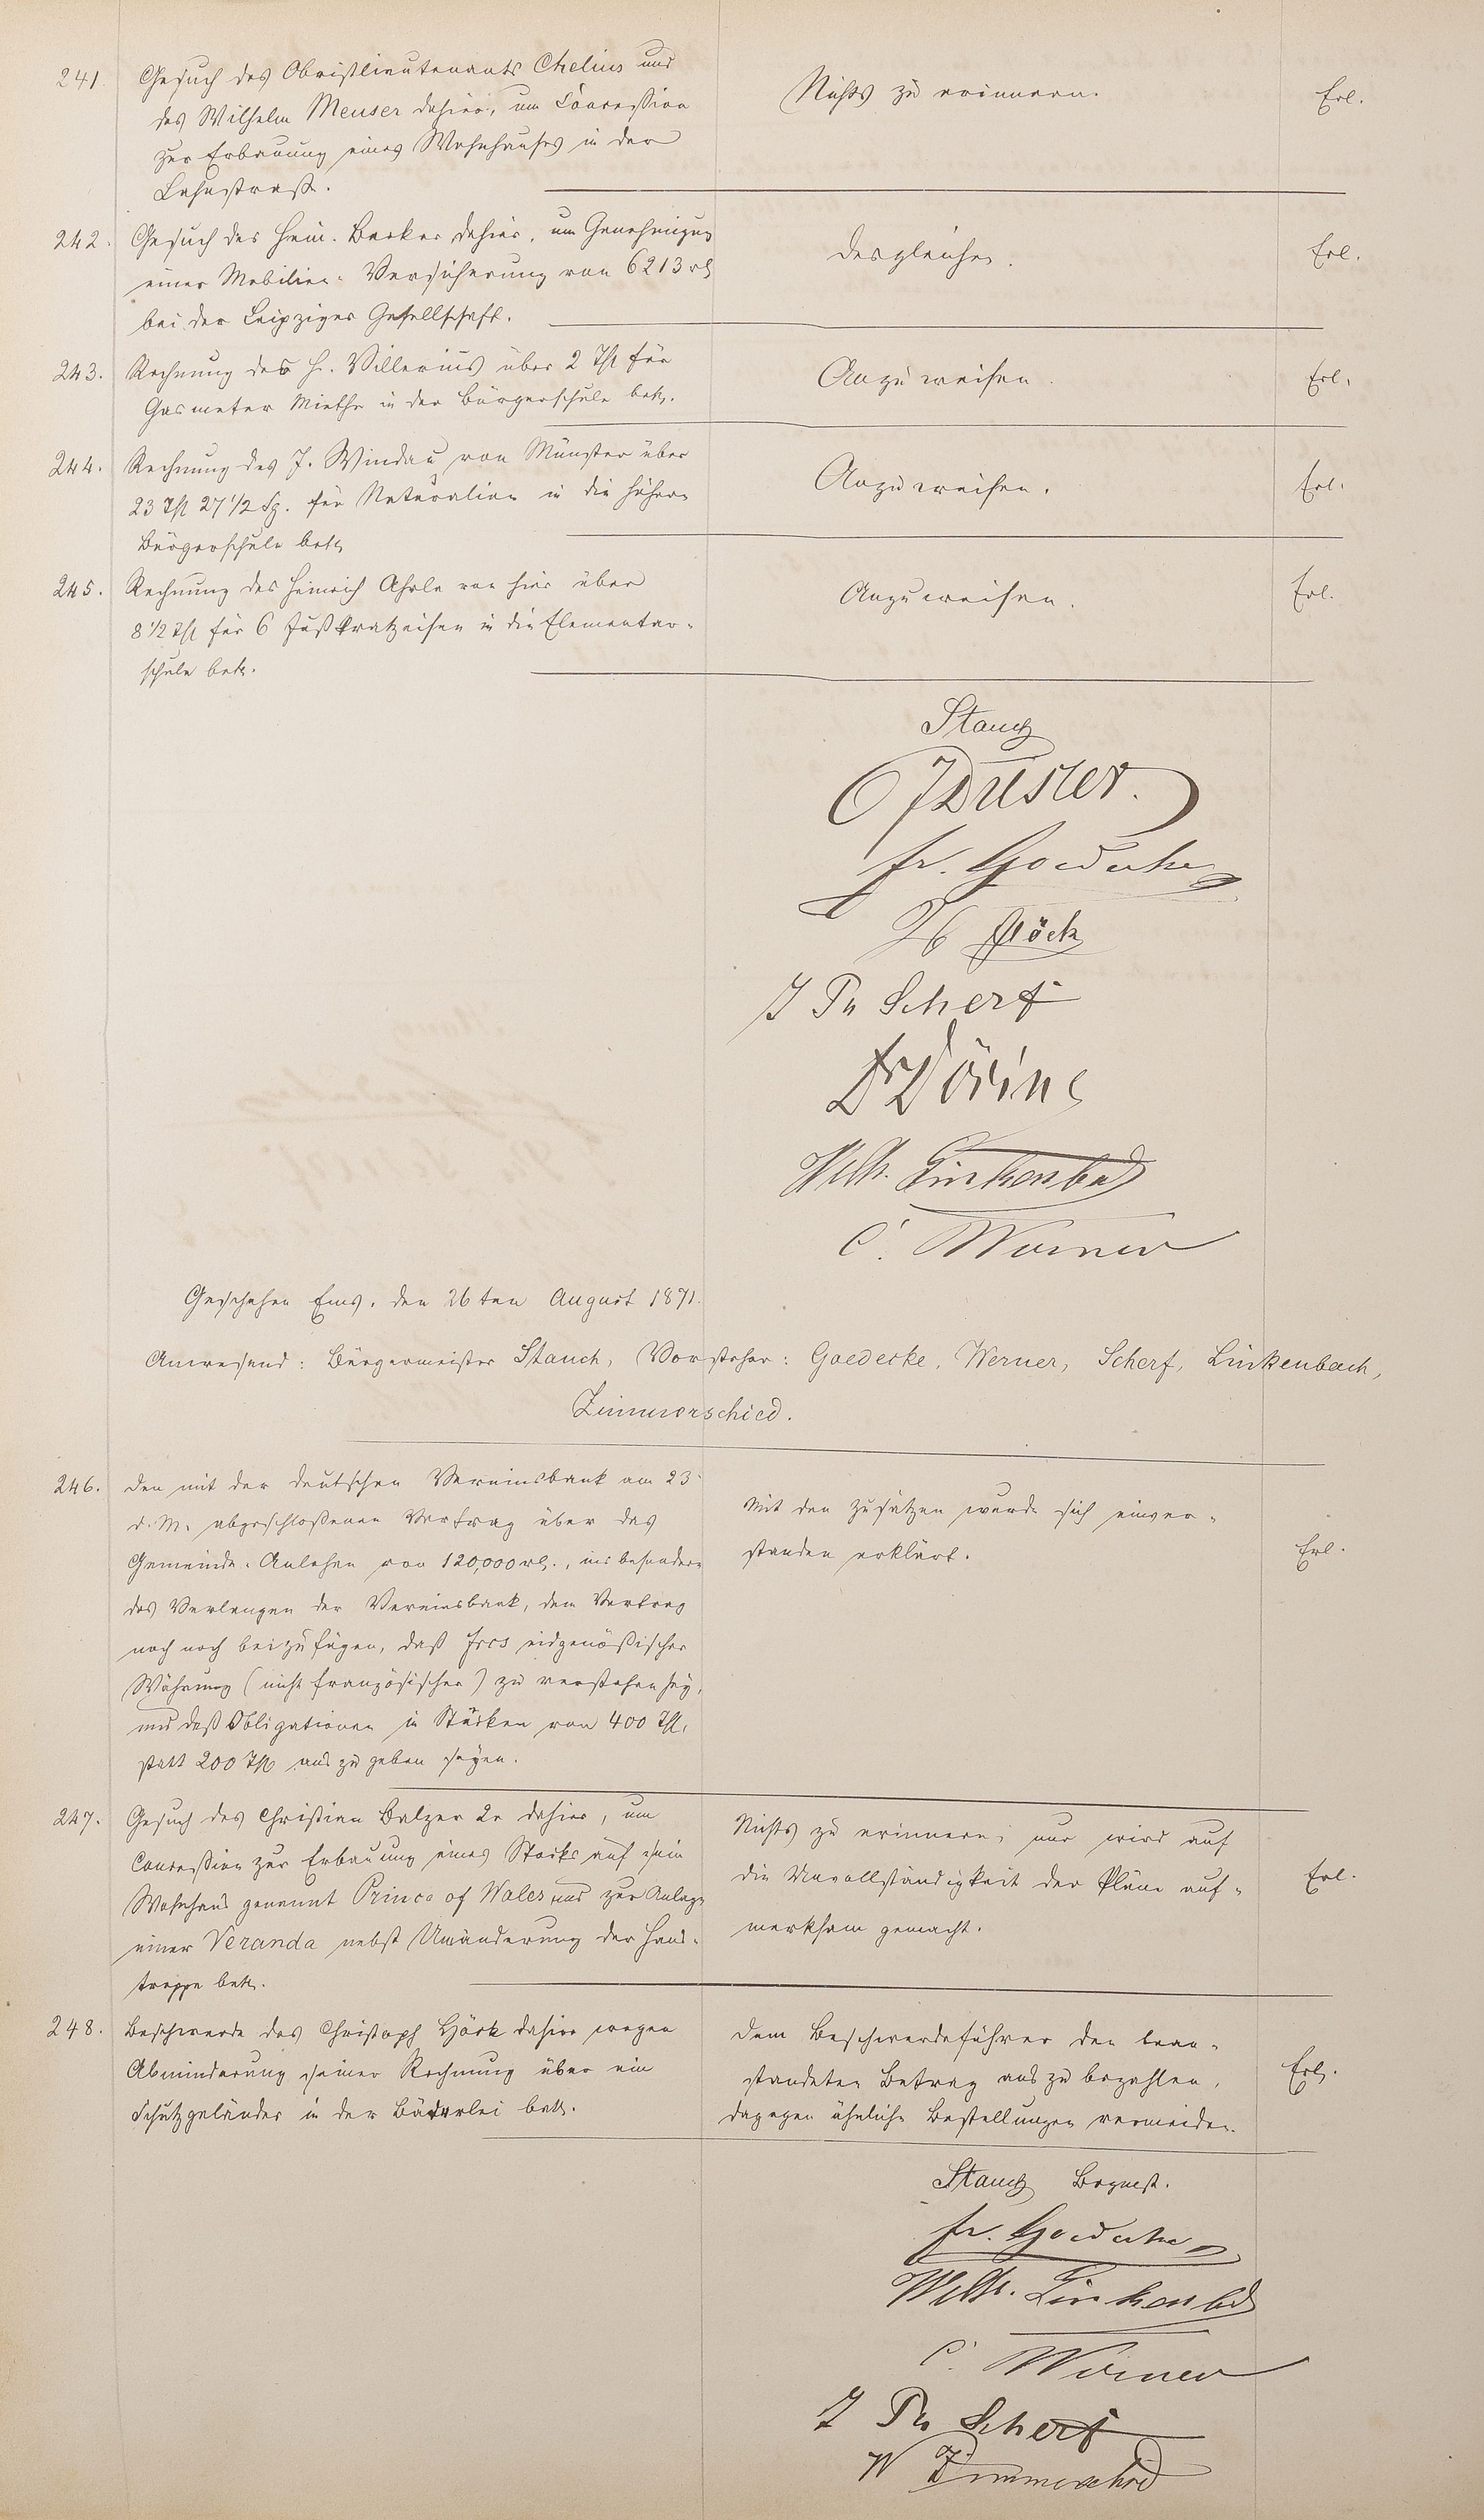 241. Gesuch des Obristlieutenants Chelius und
des Wilhelm Meuser dahier, um Concession
zur Erbauung eines Wohnhauses in der
Lahnstraße.
Nichts zu erinnern.
Erl.
242. Gesuch des Hein. Becker dahier, um Genehmigung
einer Mobilien-Versicherung von 6213 rl
bei der Leipziger Gesellschaft.
desgleichen.
Erl.
243. Rechnung des H. Villerius über 2 Thl für
Gasmeter Miethe in der Bürgerschule betr.
Anzuweisen.
Erl.
244. Rechnung des J. Windau von Münster über
23 Thl 27 1/2 Sg. für Naturalien in die höhere
Bürgerschule betr.
Anzuweisen.
Erl.
245. Rechnung des Heinrich Ahrle von hier über
8 1/2 Thl für 6 Fußkratzeisen in die Elementar-
schule betr.
Anzuweisen.
Erl.
Stauch
Düster.
Fr. Goedecke
Flöck
J Ph Scherf
Dr Döring
Wilh. Linkenbach
C. Werner
Geschehen Ems, den 26ten August 1871.
Anwesend: Bürgermeister Stauch, Vorsteher: Goedecke, Werner, Scherf, Linkenbach,
Zimmerschied.
246. Den mit der deutschen Vereinsbank am 23.
d. M. abgeschloßenen Vertrag über das
Gemeinde-Anlehen von 120,000 rl., insbesondere
das Verlangen der Vereinsbank, dem Vertrag
noch noch beizufügen, daß frcs eidgenößischer
Währung (nicht französischer) zu verstehen sey,
und daß Obligationen in Stücken von 400 Thl,
statt 200 Thl auszugeben seyen.
Mit den Zusätzen wurde sich einver-
standen erklärt.
Erl.
247. Gesuch des Christian Balzer 2r dahier, um
Concession zur Erbauung eines Stocks auf sein
Wohnhaus genannt Prince of Wales und zur Anlage
einer Veranda nebst Umänderung der Haus-
treppe betr.
Nichts zu erinnern; nur wird auf
die Unvollständigkeit der Pläne auf-
merksam gemacht.
Erl.
248. Beschwerde des Christoph Höck dahier wegen
Abminderung seiner Rechnung über ein
Schutzgeländer in der Bäderlei betr.
Dem Beschwerdeführer den bean-
standeten Betrag auszubezahlen,
dagegen ähnliche Bestellungen vermeiden.
Erl.
Stauch Brgmst.
Fr. Goedecke
Wilh. Linkenbach
C. Werner
J Ph Scherf
W Zimmerschied